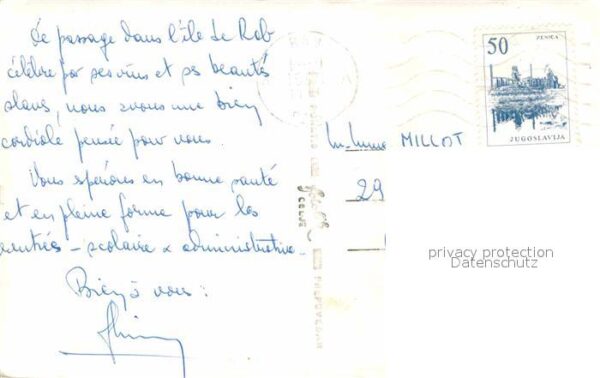 De passage dans l'île de Rab
célèbre par ses vins et ses beautés
slaves, nous avons une bien
cordiale pensée pour vous.
Vous espérons en bonne santé
et en pleine forme pour les
rentrées - scolaire & administrative.
Bien à vous :
MILLOT
29
50
ZENICA
JUGOSLAVIJA
CELJE
privacy protection
Datenschutz